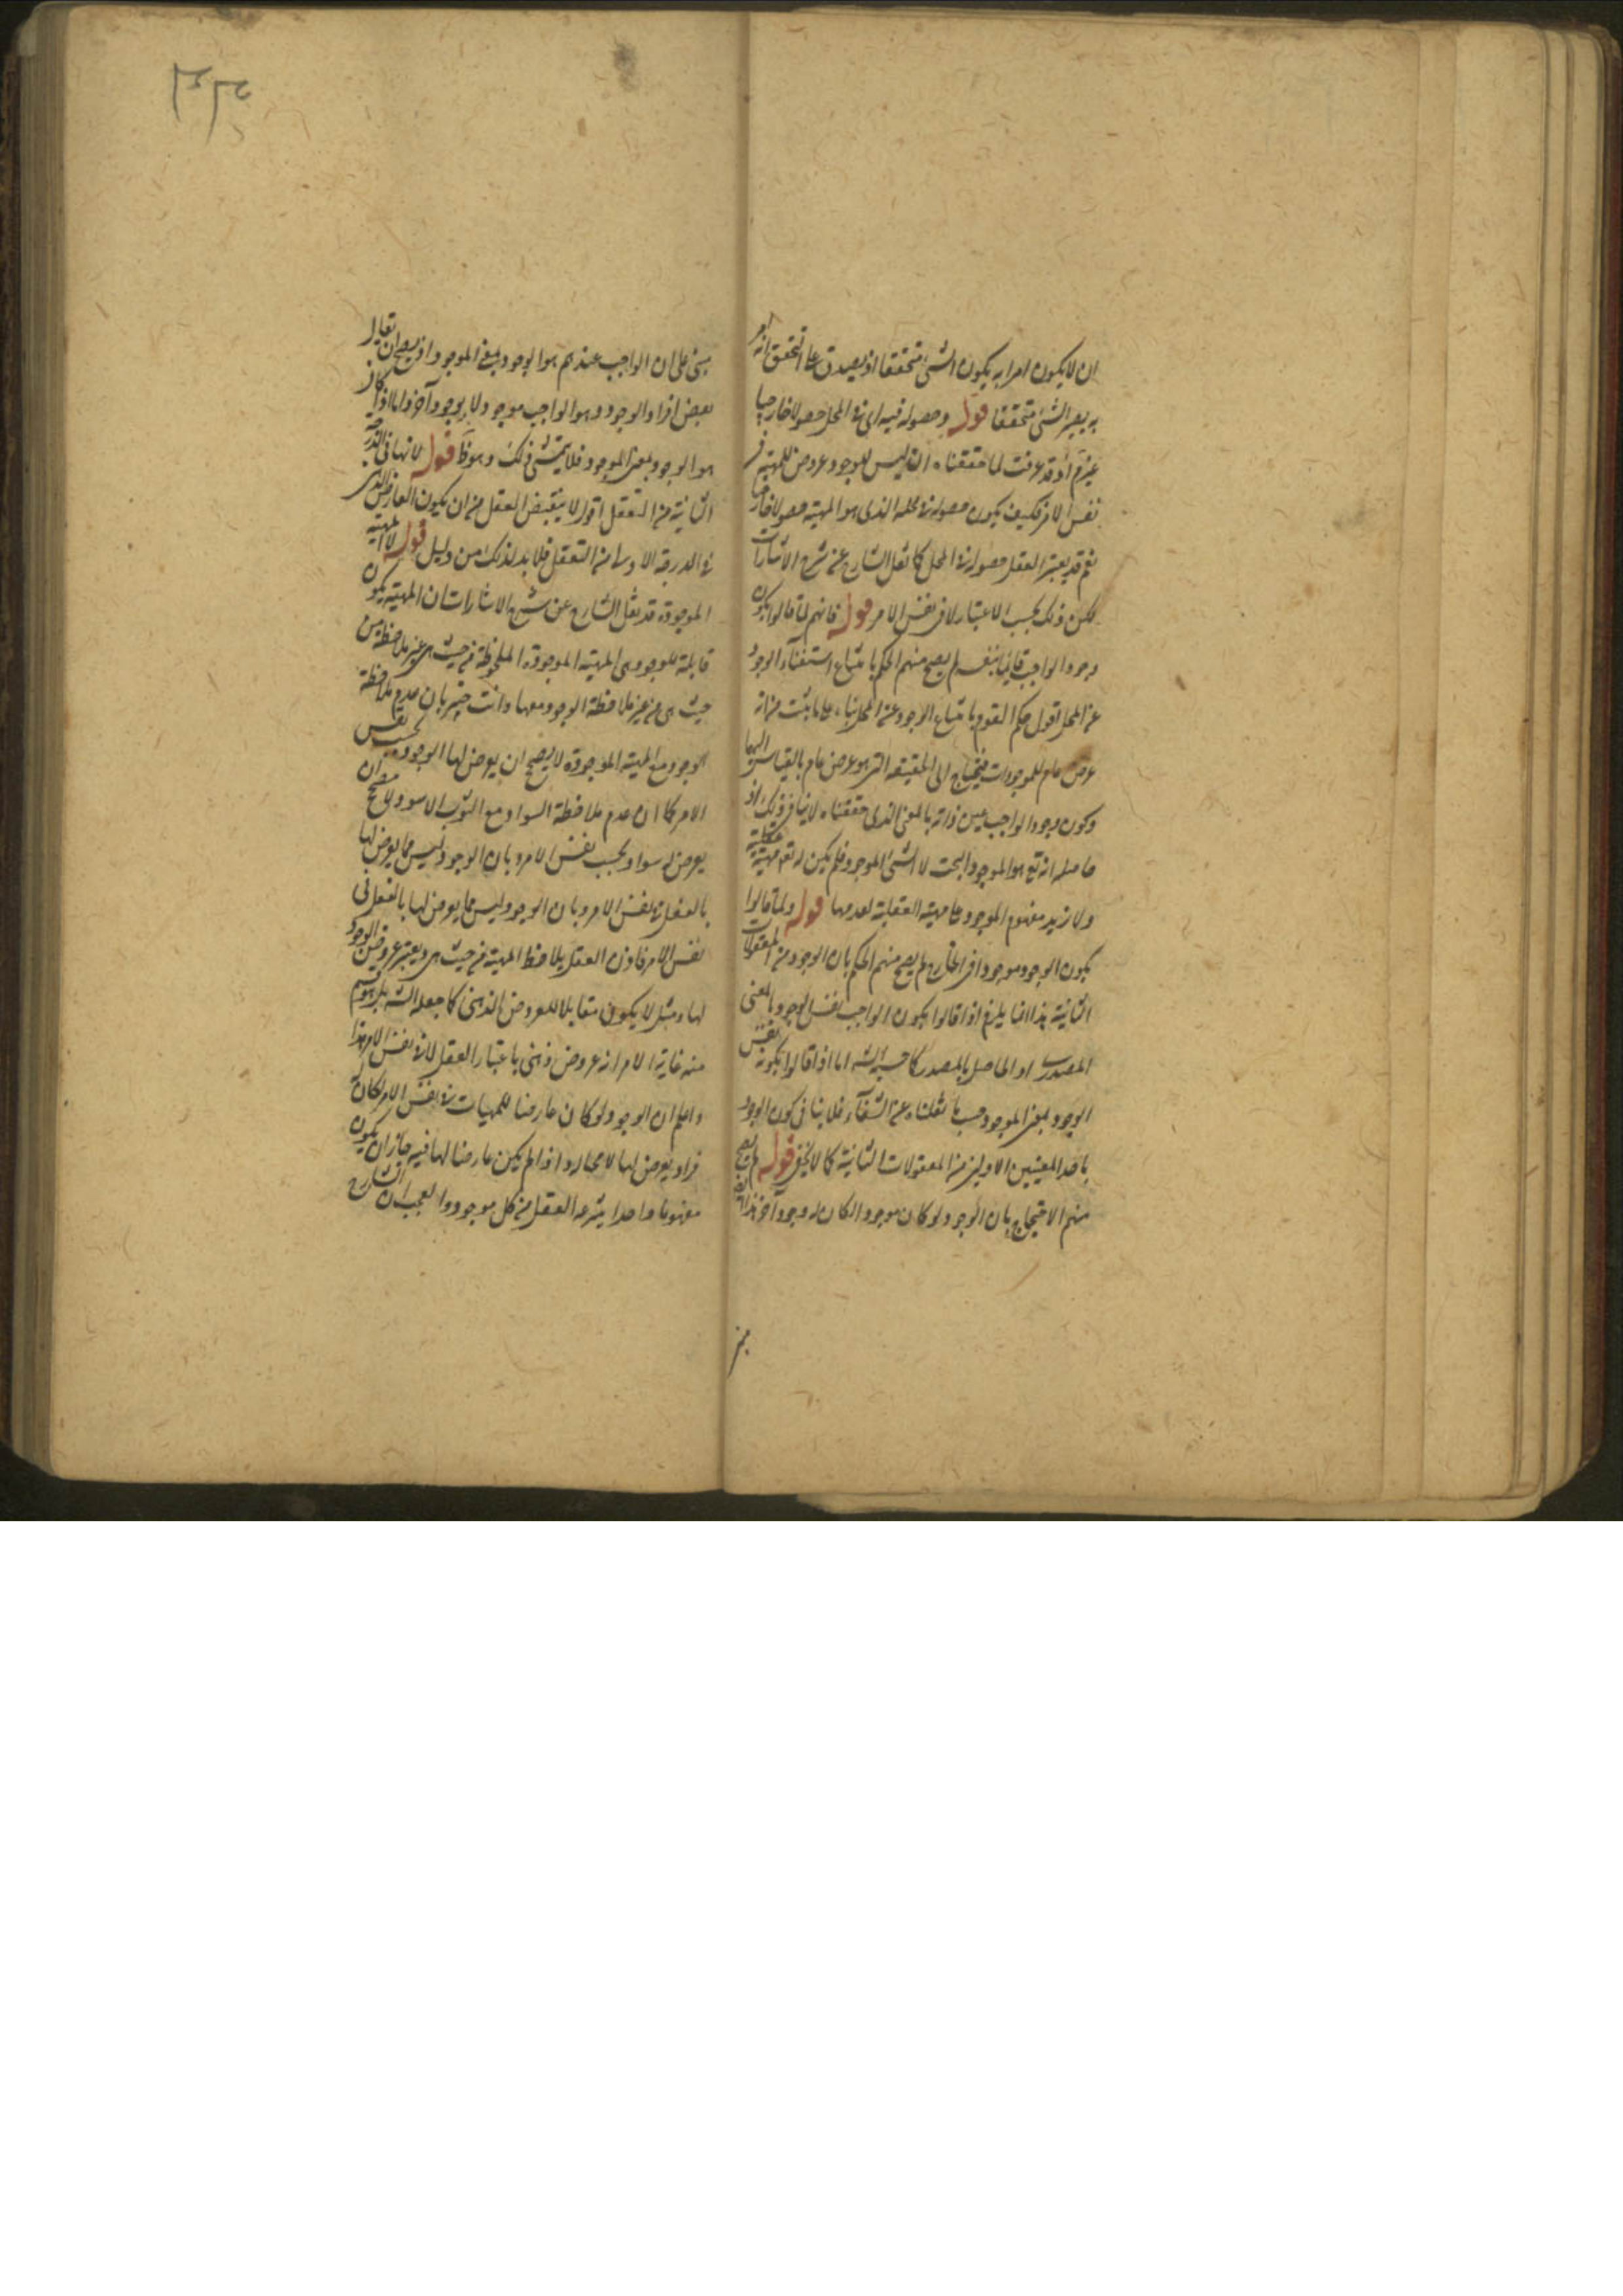 ان لا يكون امرا به يكون الشئ متحققا اذ يصدق على التحقق انه امر
به يصير الشئ متحققا قوله وحصوله فيه اى فى المحل حصولا خارجيا
غير تم اذ قد عرفت لما حققناه انه ليس للوجود عروض للمهية فى
نفس الامر فكيف يكون حصوله فى محله الذى هو المهية حصولا خارجيا
نعم قد يعتبر العقل حصوله فى المحل كما نقل الشارح عن شرح الاشارات
لكن ذلك بحسب الاعتبار لا فى نفس الامر قوله فانهم لما قالوا بكون
وجود الواجب قائما بنفسه لم يصح منهم الحكم بامتناع استغناء الوجود
عن المحل اقول حكم القوم بامتناع الوجود عن المحل بناء على ما يثبت من انه
عرض عام للموجودات فيحتاج الى الحقيقة التى هو عرض عام بالقياس اليها
وكون وجود الواجب عين ذاته بالمعنى الذى حققناه لا ينافى ذلك اذ
حاصله انه تع هو الموجود البحت لا الشئ الموجود فلم يكن له تع مهية عقلية
ولا زيد مفهوم الموجود على مهيته العقلية لعدمها قوله ولما قالوا
بكون الوجود موجودا فى الخارج لم يصح منهم الحكم بان الوجود من المعقولات
الثانية هذا انما يلزم اذا قالوا بكون الواجب نفس الوجود بالمعنى
المصدرى او الحاصل بالمصدر كما حسبه الشه اما اذا قالوا بكونه نفس
الوجود بمعنى الموجود حسب ما نقلناه عن الشفاء فلا ينافى كون الوجود
باحد المعنيين الاولين من المعقولات الثانية كما لا يخفى قوله لم يصح
منهم الاحتجاج بان الوجود لو كان موجودا لكان له وجود آخر هذا ايضا
مبنى على ان الواجب عندهم هو الوجود بمعنى الموجود اذ يصح ان تعالى
بعض افراد الوجود وهو الواجب موجود لا بوجود آخر واما اذا كان
هو الوجود بمعنى الموجود فلا يتمشى ذلك وهو ظ قوله لانها فى الدرجة
الثانية من التعقل اقول لا ينقبض العقل من ان يكون العارض الذى
فى الدرجة الاولى من التعقل فلا بد لذلك من دليل قوله لا المهية
الموجودة قد نقل الشارح عن شرح الاشارات ان المهية يكون
قابلة للوجود وهى المهية الموجودة الملحوظة من حيث هى غير ملاحظة من
حيث هى من غير ملاحظة الوجود معها وانت خبير بان عدم ملاحظة
الوجود مع المهية الموجودة لا يصحح ان يعرض لها الوجود بحسب نفس
الامر كما ان عدم ملاحظة السواد مع الثوب الاسود لا يصحح ان
يعرض له سواد بحسب نفس الامر وبان الوجود ليس مما يعرض لها
بالفعل فى نفس الامر وبان الوجود ليس مما يعرض لها بالفعل فى
نفس الامر فاذن العقل يلاحظ المهية من حيث هى ويعتبر عروض الوجود
لها ومثل لا يكون مقابلا للعروض الذهنى كما جعله الشه بل هو قسم
منه غاية الامر انه عروض ذهنى باعتبار العقل لا فى نفس الامر هذا
واعلم ان الوجود لو كان عارضا للمهيات فى نفس الامر لكان له
افراد يعرض لها لا محالة واذا لم يكن عارضا لها فيه جاز ان يكون
مفهوما واحدا ينتزعه العقل من كل موجود والعجب ان الشارح